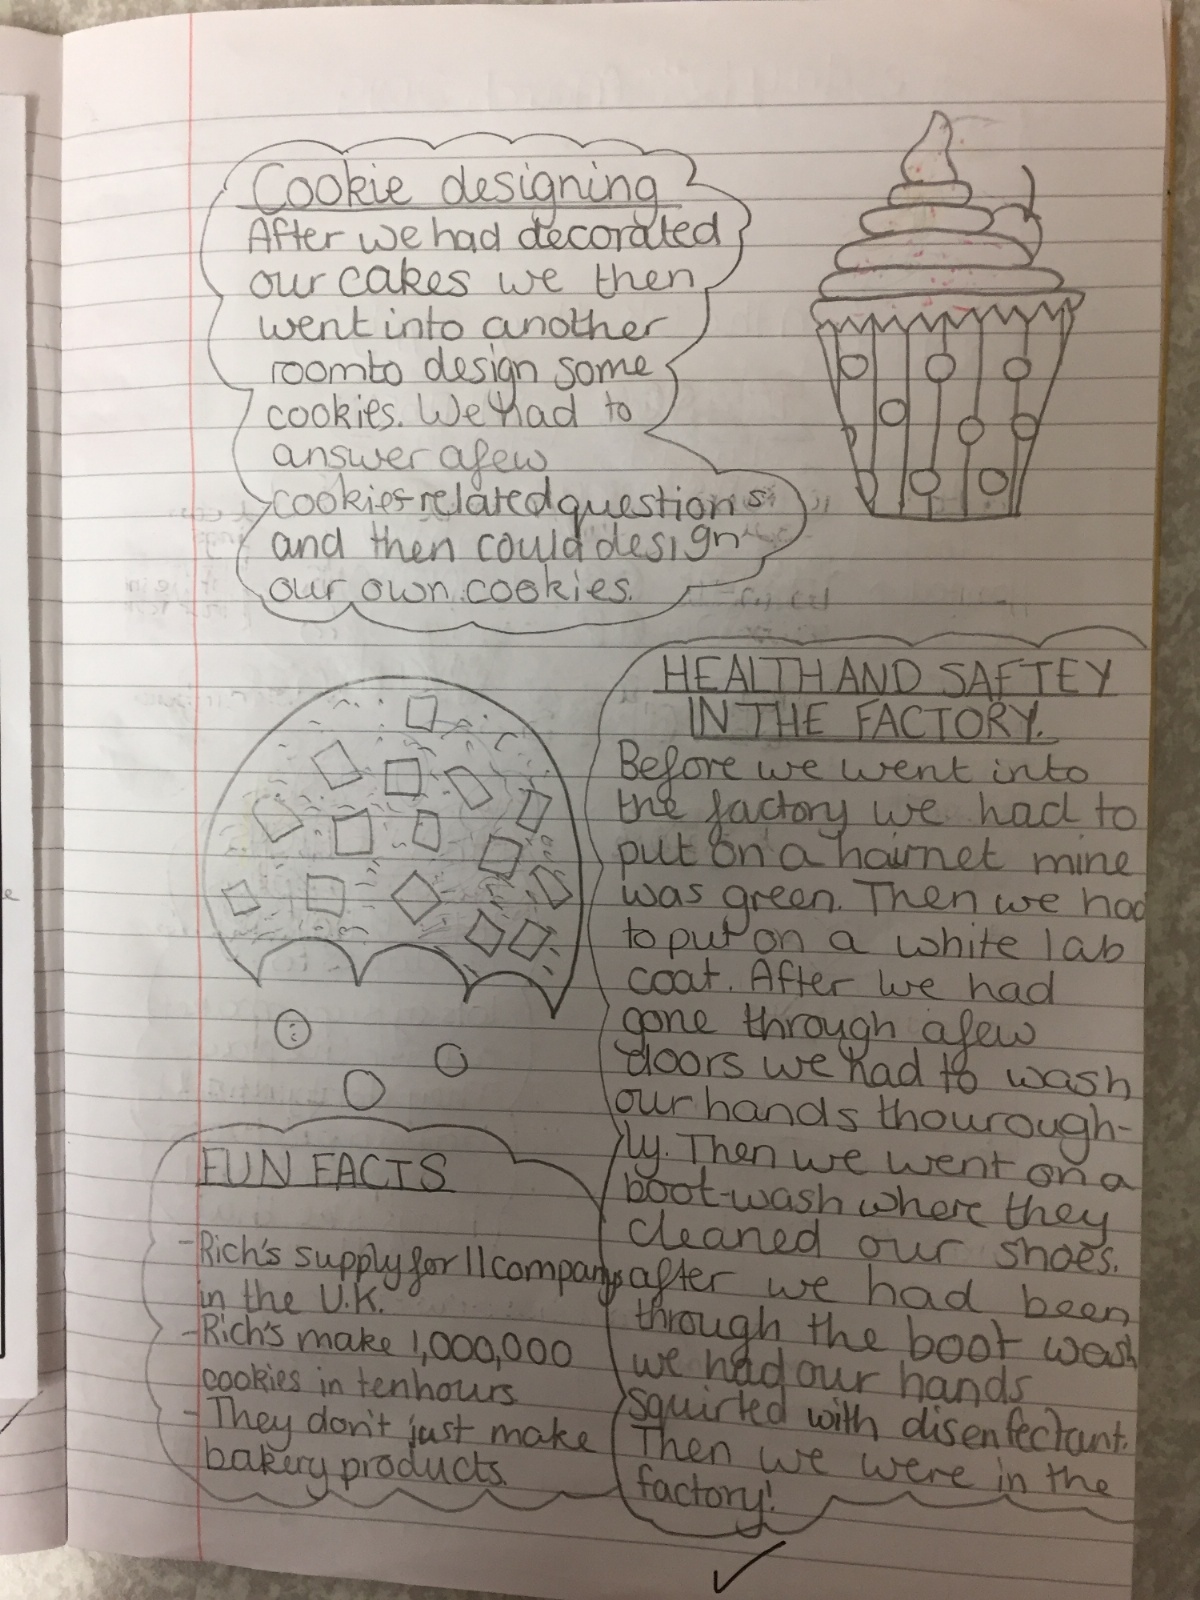 Cookie designing
After we had decorated
our cakes we then
went into another
room to design some
cookies. We had to
answer a few
cookies-related questions
and then could design
our own cookies.
HEALTH AND SAFTEY
IN THE FACTORY.
Before we went into
the factory we had to
put on a hairnet mine
was green. Then we had
to put on a white lab
coat. After we had
gone through a few
doors we had to wash
our hands thourough-
ly. Then we went on a
boot-wash where they
cleaned our shoes.
after we had been
through the boot wash
we had our hands
squirted with disenfectant.
Then we were in the
factory!
FUN FACTS
-Rich's supply for 11 companys
in the U.K.
-Rich's make 1,000,000
cookies in ten hours
-They don't just make
bakery products.